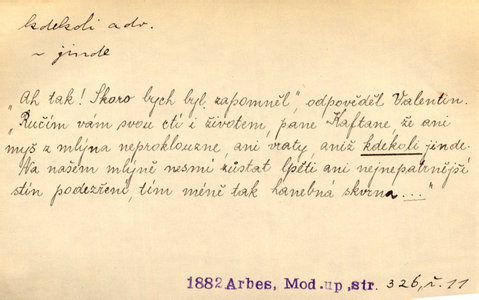 kdekoli adv.
~ jinde
„Ah tak! Skoro bych byl zapomněl", odpověděl Valentin.
„Ručím vám svou ctí i životem, pane Kaftane, že ani
myš z mlýna neproklouzne ani vraty, aniž kdekoli jinde.
Na našem mlýně nesmí zůstat lpěti ani nejnepatrnější
stín podezření, tím méně tak hanebná skvrna ..."
1882 Arbes, Mod. up, str. 326, č. 11